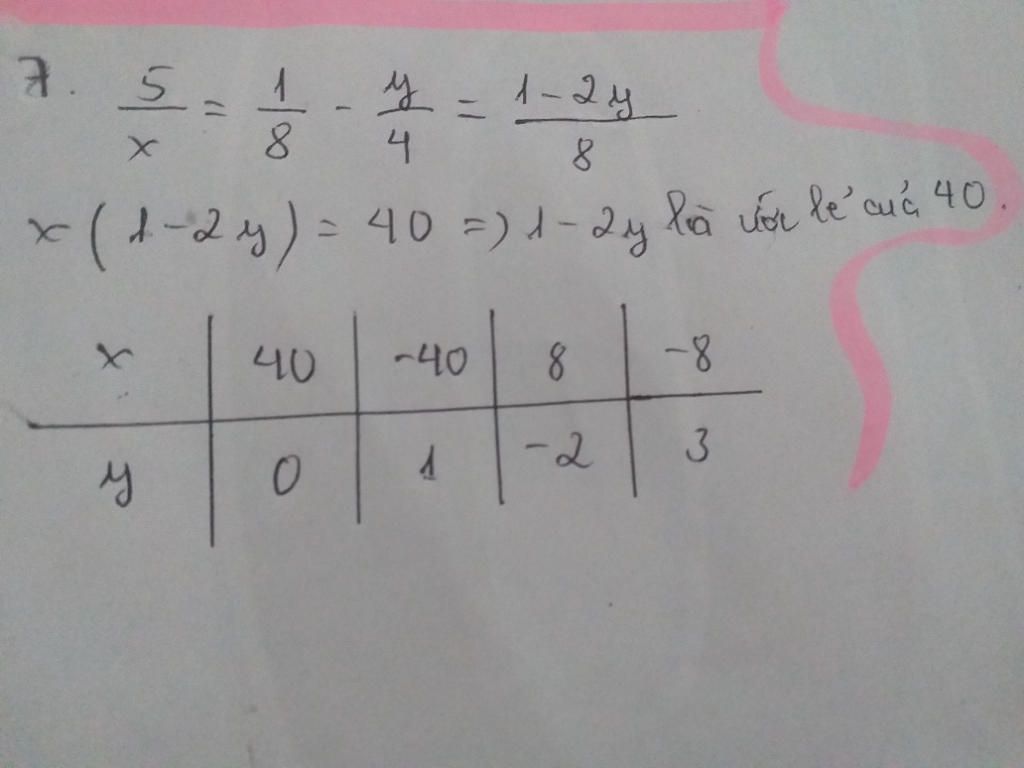 7. 5/x = 1/8 - y/4 = (1-2y)/8
x(1-2y) = 40 => 1-2y là ước lẻ của 40.
x | 40 | -40 | 8 | -8
y | 0 | 1 | -2 | 3